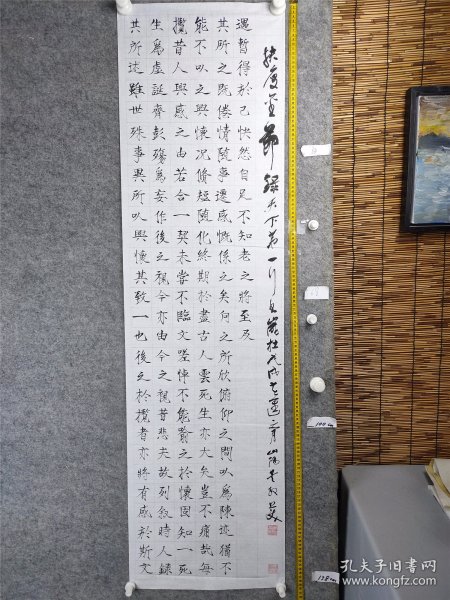 録天下第一行
遇暫得於己快然自足不知老之將至及
其所之既倦情隨事遷感慨係之矣向之所欣俯仰之間以為陳迹猶不
能不以之興懷况脩短隨化終期於盡古人雲死生亦大矣豈不痛哉每
攬昔人興感之由若合一契未嘗不臨文嗟悼不能喻之於懷固知一死
生為虛誕齊彭殤為妄作後之視今亦由今之視昔悲夫故列敘時人錄
其所述雖世殊事異所以興懷其致一也後之於攬者亦將有感於斯文
100 cm
138 cm
孔夫子旧书网
www.kongfz.com